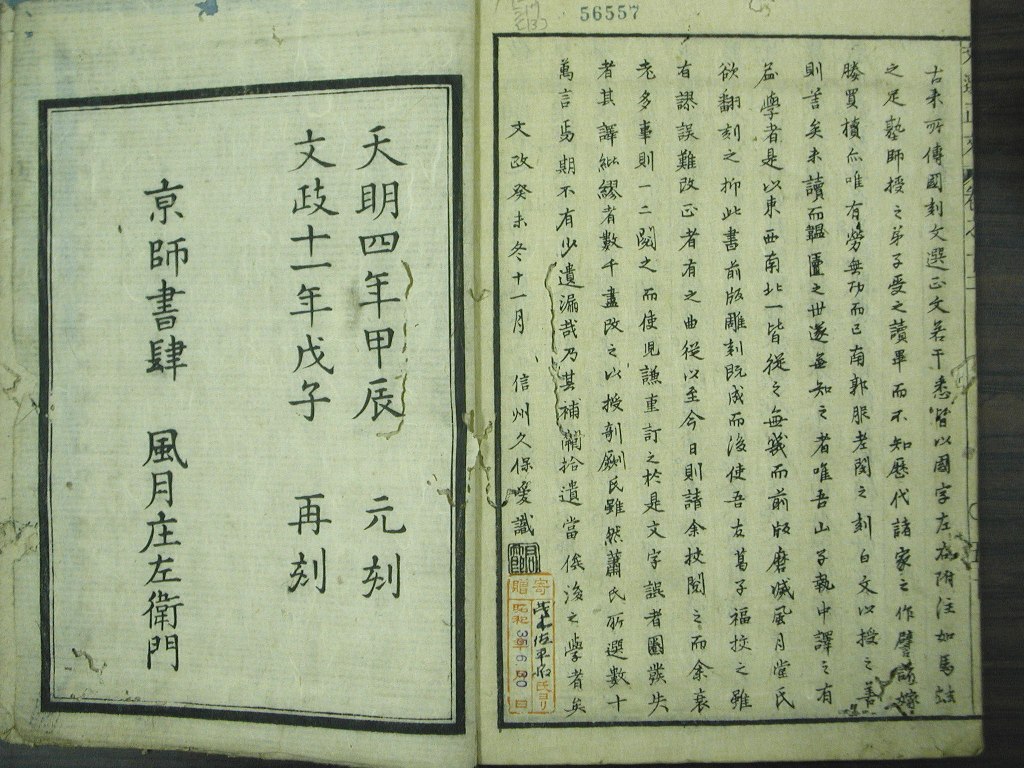 56557
古来所傳國刻文選正文若干悉皆以國字左右附注如馬融
之足塾師授之弟子受之讀畢而不知歴代諸家之作譬諸嫁
媵買櫝亦唯有勞無功而已南郭服老閔之刻白文以授之善
則善矣未讀而韞匵之世遂無知之者唯吾山子執中譯之有
益學者是以東西南北一皆從之無幾而前版磨滅風月堂氏
欲翻刻之抑此書前版雕刻既成而後使吾友葛子福校之雖
有謬誤難改正者有之曲従以至今日則請余校閲之而余衰
老多事則一二閲之而使児謙重訂之於是文字誤者圏發失
者其譯紕繆者數千盡改之以授剞劂氏雖然蕭氏所選數十
萬言焉期不有少遺漏哉乃其補闕拾遺當俟後之學者矣
文政癸未冬十一月　信州久保愛識
寄贈
氏ヨリ
昭和 年6 30日
天明四年甲辰　元刻
文政十一年戊子　再刻
京師書肆　風月庄左衛門